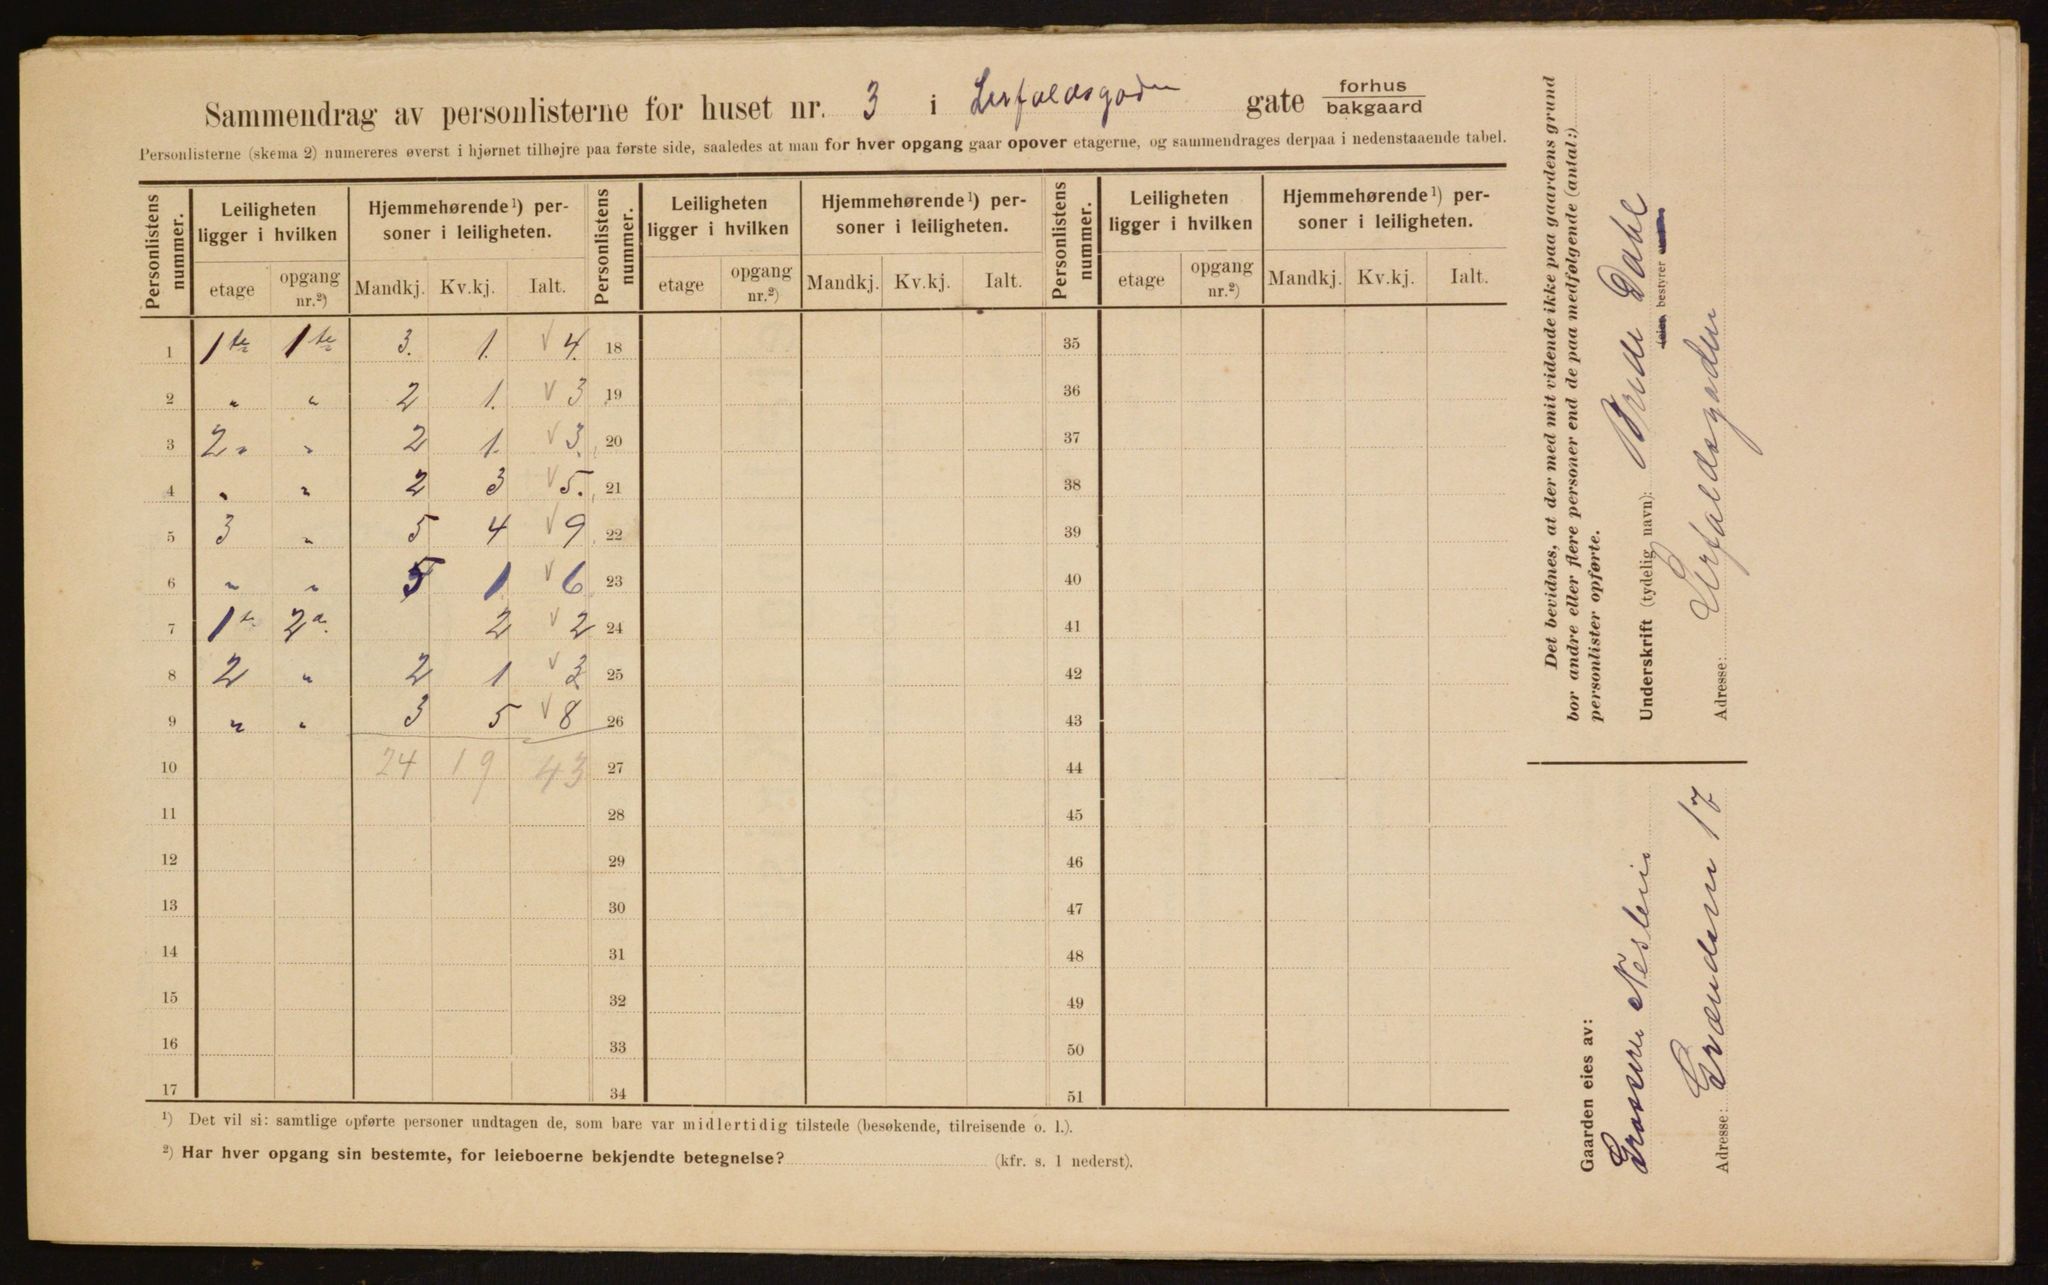 Sammendrag av personlisterne for huset nr. 3 i Lerfaldsgaden gate forhus
bakgaard
Personlisterne (skema 2) numereres øverst i hjørnet tilhøjre paa første side, saaledes at man for hver opgang gaar opover etagerne, og sammendrages derpaa i nedenstaaende tabel.
Personlistens nummer. Leiligheten ligger i hvilken Hjemmehørende ¹) personer i leiligheten. Personlistens nummer. Leiligheten ligger i hvilken Hjemmehørende ¹) personer i leiligheten. Personlistens nummer. Leiligheten ligger i hvilken Hjemmehørende ¹) personer i leiligheten.
etage opgang nr.²) Mandkj. Kv.kj. Ialt. etage opgang nr.²) Mandkj. Kv.kj. Ialt. etage opgang nr.²) Mandkj. Kv.kj. Ialt.
1 1te 1te 3. 1. V 4. 18 35
2 " " 2 1. V 3 19 36
3 2" " 2 1. V 3. 20 37
4 " " 2 3 V 5. 21 38
5 3 " 5 4 V 9 22 39
6 " " 5 1 V 6 23 40
7 1te 2den 2 V 2 24 41
8 2 " 2 1 V 3 25 42
9 " " 3 5 V 8 26 43
10 24 19 43 27 44
11 28 45
12 29 46
13 30 47
14 31 48
15 32 49
16 33 50
17 34 51
¹) Det vil si: samtlige opførte personer undtagen de, som bare var midlertidig tilstede (besøkende, tilreisende o. l.).
²) Har hver opgang sin bestemte, for leieboerne bekjendte betegnelse? (kfr. s. 1 nederst).
Det bevidnes, at der med mit vidende ikke paa gaardens grund
bor andre eller flere personer end de paa medfølgende (antal:)
personlister opførte.
Underskrift (tydelig navn): Dahl
(eier, bestyrer
Adresse: Lerfaldsgaden
Garden eies av:
Neslein
Adresse: Grændsen 17